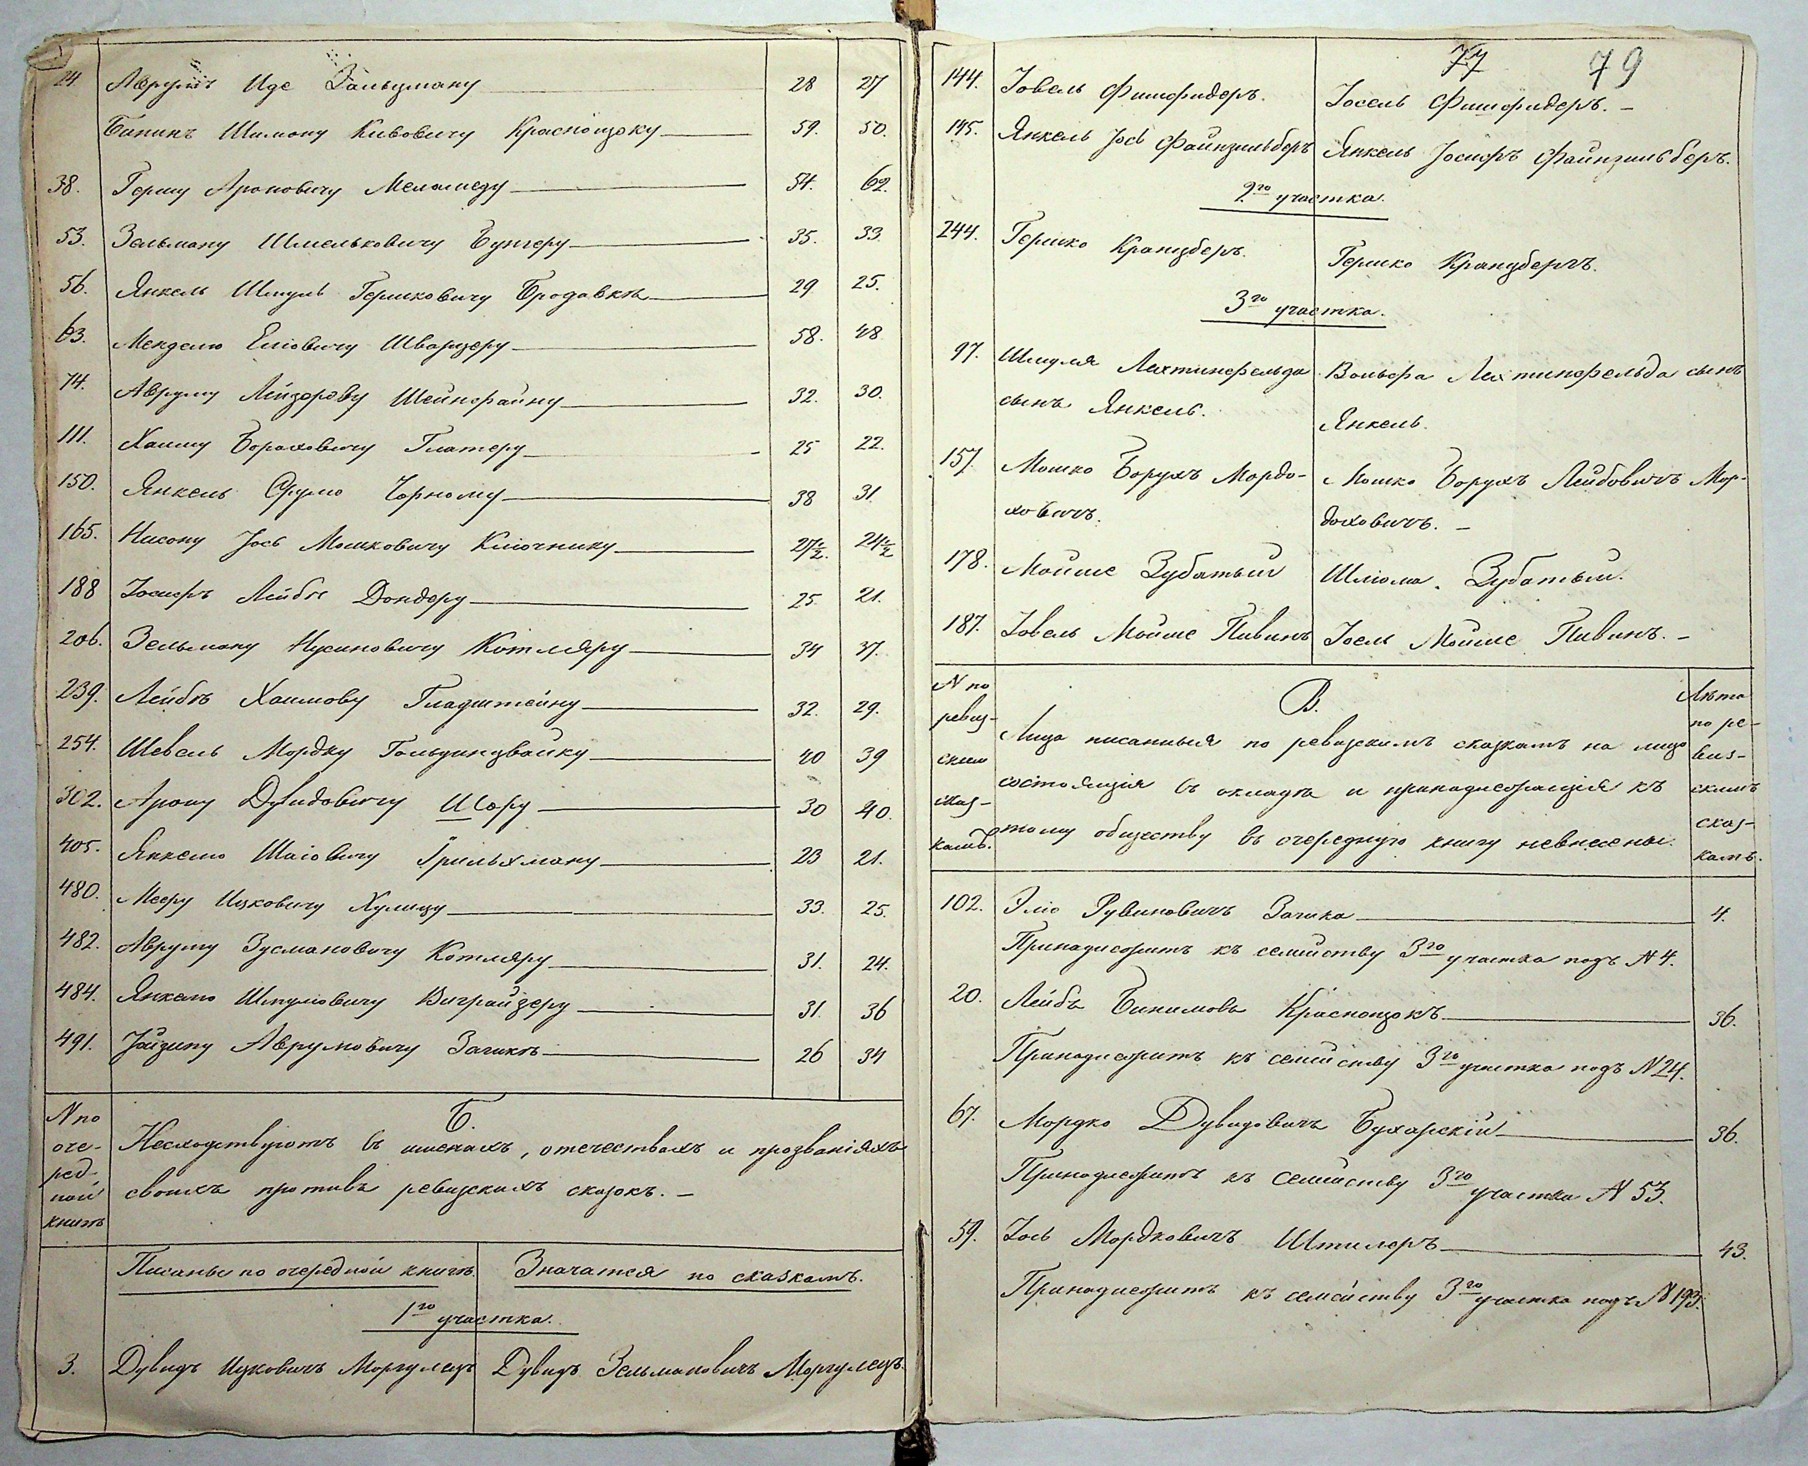 24. Аврумъ Иде Зальцману 28 27
Бининъ Шимону Кивовичу Краснонзоку 59. 50.
38. Гершу Ароновичу Меламеду 54. 62.
53. Зельману Шмельковичу Бунгеру 35. 33
56. Янкель Шмуль Гершковичу Бродавкѣ 29 25.
63. Менделю Еліовичу Шварцеру 58. 48
74. Авруму Лейзерову Шейнфайну 32. 30.
111. Хаиму Бороховичу Глатеру 25 22.
150. Янкель Фрумо Чорному 38 31.
165. Нисону Іось Мошковичу Ключнику 27½. 24½
188 Іосифъ Лейбѣ Дондеру 25 21.
206. Зельману Нусиновичу Котляру 34 37.
239. Лейбѣ Хаимову Гладштейну 32. 29.
254. Шевель Мордку Гольдингвайку 40 39
302. Арону Дувидовичу Шору 30 40.
405. Янкелю Шаіовичу Грильхману 23 21.
480. Мееру Ицковичу Хулицу 33. 25.
482. Авруму Зусмановичу Котляру 31. 24.
484. Янкелю Шмуліовичу Виграйзеру 31. 36
491. Іойзипу Аврумовичу Загикѣ 26 34
N по
оче-
ред-
ной
книгѣ
Б.
Несходствуютъ въ именахъ, отечествахъ и прозваніяхъ
своихъ противъ ревизскихъ сказокъ. –
Писаны по очередной книгѣ. Значатся по сказкамъ.
1го участка.
3. Дувидъ Ицковичъ Моргулецъ Дувидъ Зельмановичъ Моргулецъ.
77 79
144. Іовель Фишфидеръ. Іосель Фишфидеръ. –
145. Янкель Іось Файнзильберъ Янкель Іосифъ Файнзильберъ.
2го участка.
244. Гершко Кранцберъ. Гершко Кранцбергъ.
3го участка.
97. Шмуля Лехтинфельда Вольфа Лехтинфельда сынъ
сынъ Янкель. Янкель.
157. Мошко Борухъ Мордо- Мошко Борухъ Лейбовичъ Мор-
ховичъ. доховичъ. –
178. Мойше Зубатый Шліома Зубатый.
187. Іовель Мойше Пивинъ Іоель Мойше Пивинъ. –
N по
ревиз-
скимъ
сказ-
камъ.
В.
Лица писанныя по ревизскимъ сказкамъ на лицо
состоящія въ окладѣ и принадлежащія къ
тому обществу въ очередную книгу невнесены.
Лѣта
по ре-
виз-
скимъ
сказ-
камъ.
102. Эліо Рувиновичъ Загика 4.
Принадлежитъ къ семейству 3го участка подъ N 4.
20. Лейба Бинимовъ Краснонзокъ 36.
Принадлежитъ къ семейству 3го участка подъ N 24.
67. Мордко Дувидовичъ Бухарскій 36.
Принадлежитъ къ семейству 3го участка N 53.
59. Іось Мордковичъ Штилеръ 43.
Принадлежитъ къ семейству 3го участка подъ N 193.